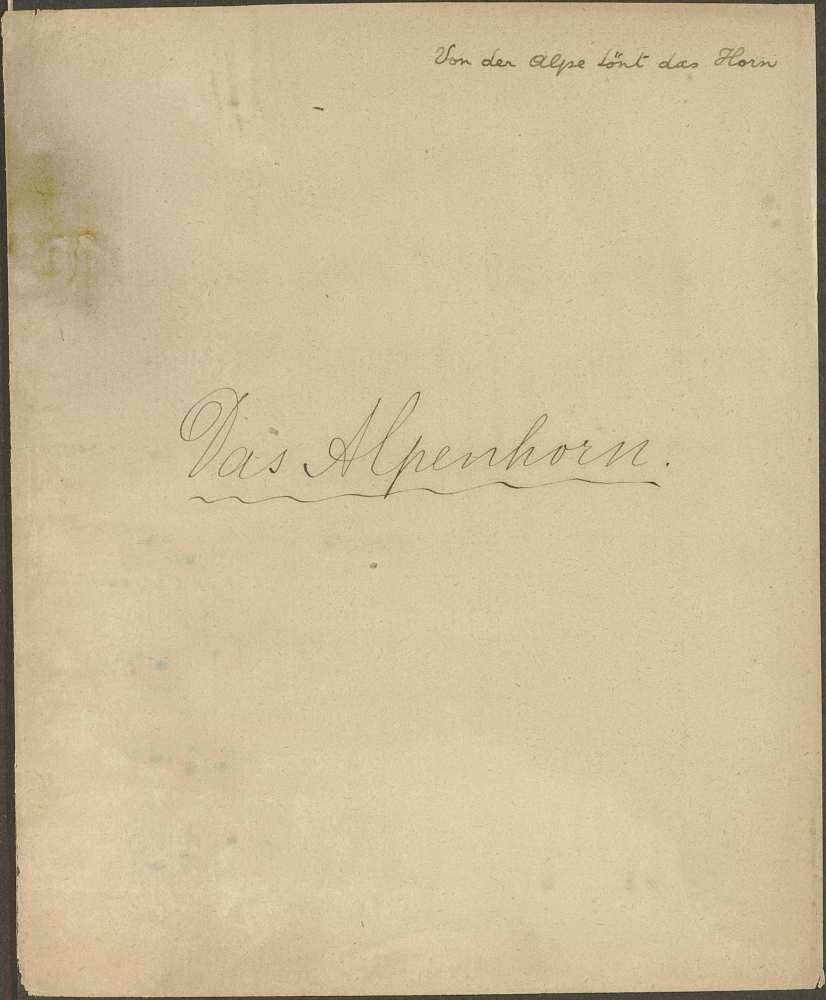 Von der Alpe tönt das Horn
Das Alpenhorn.